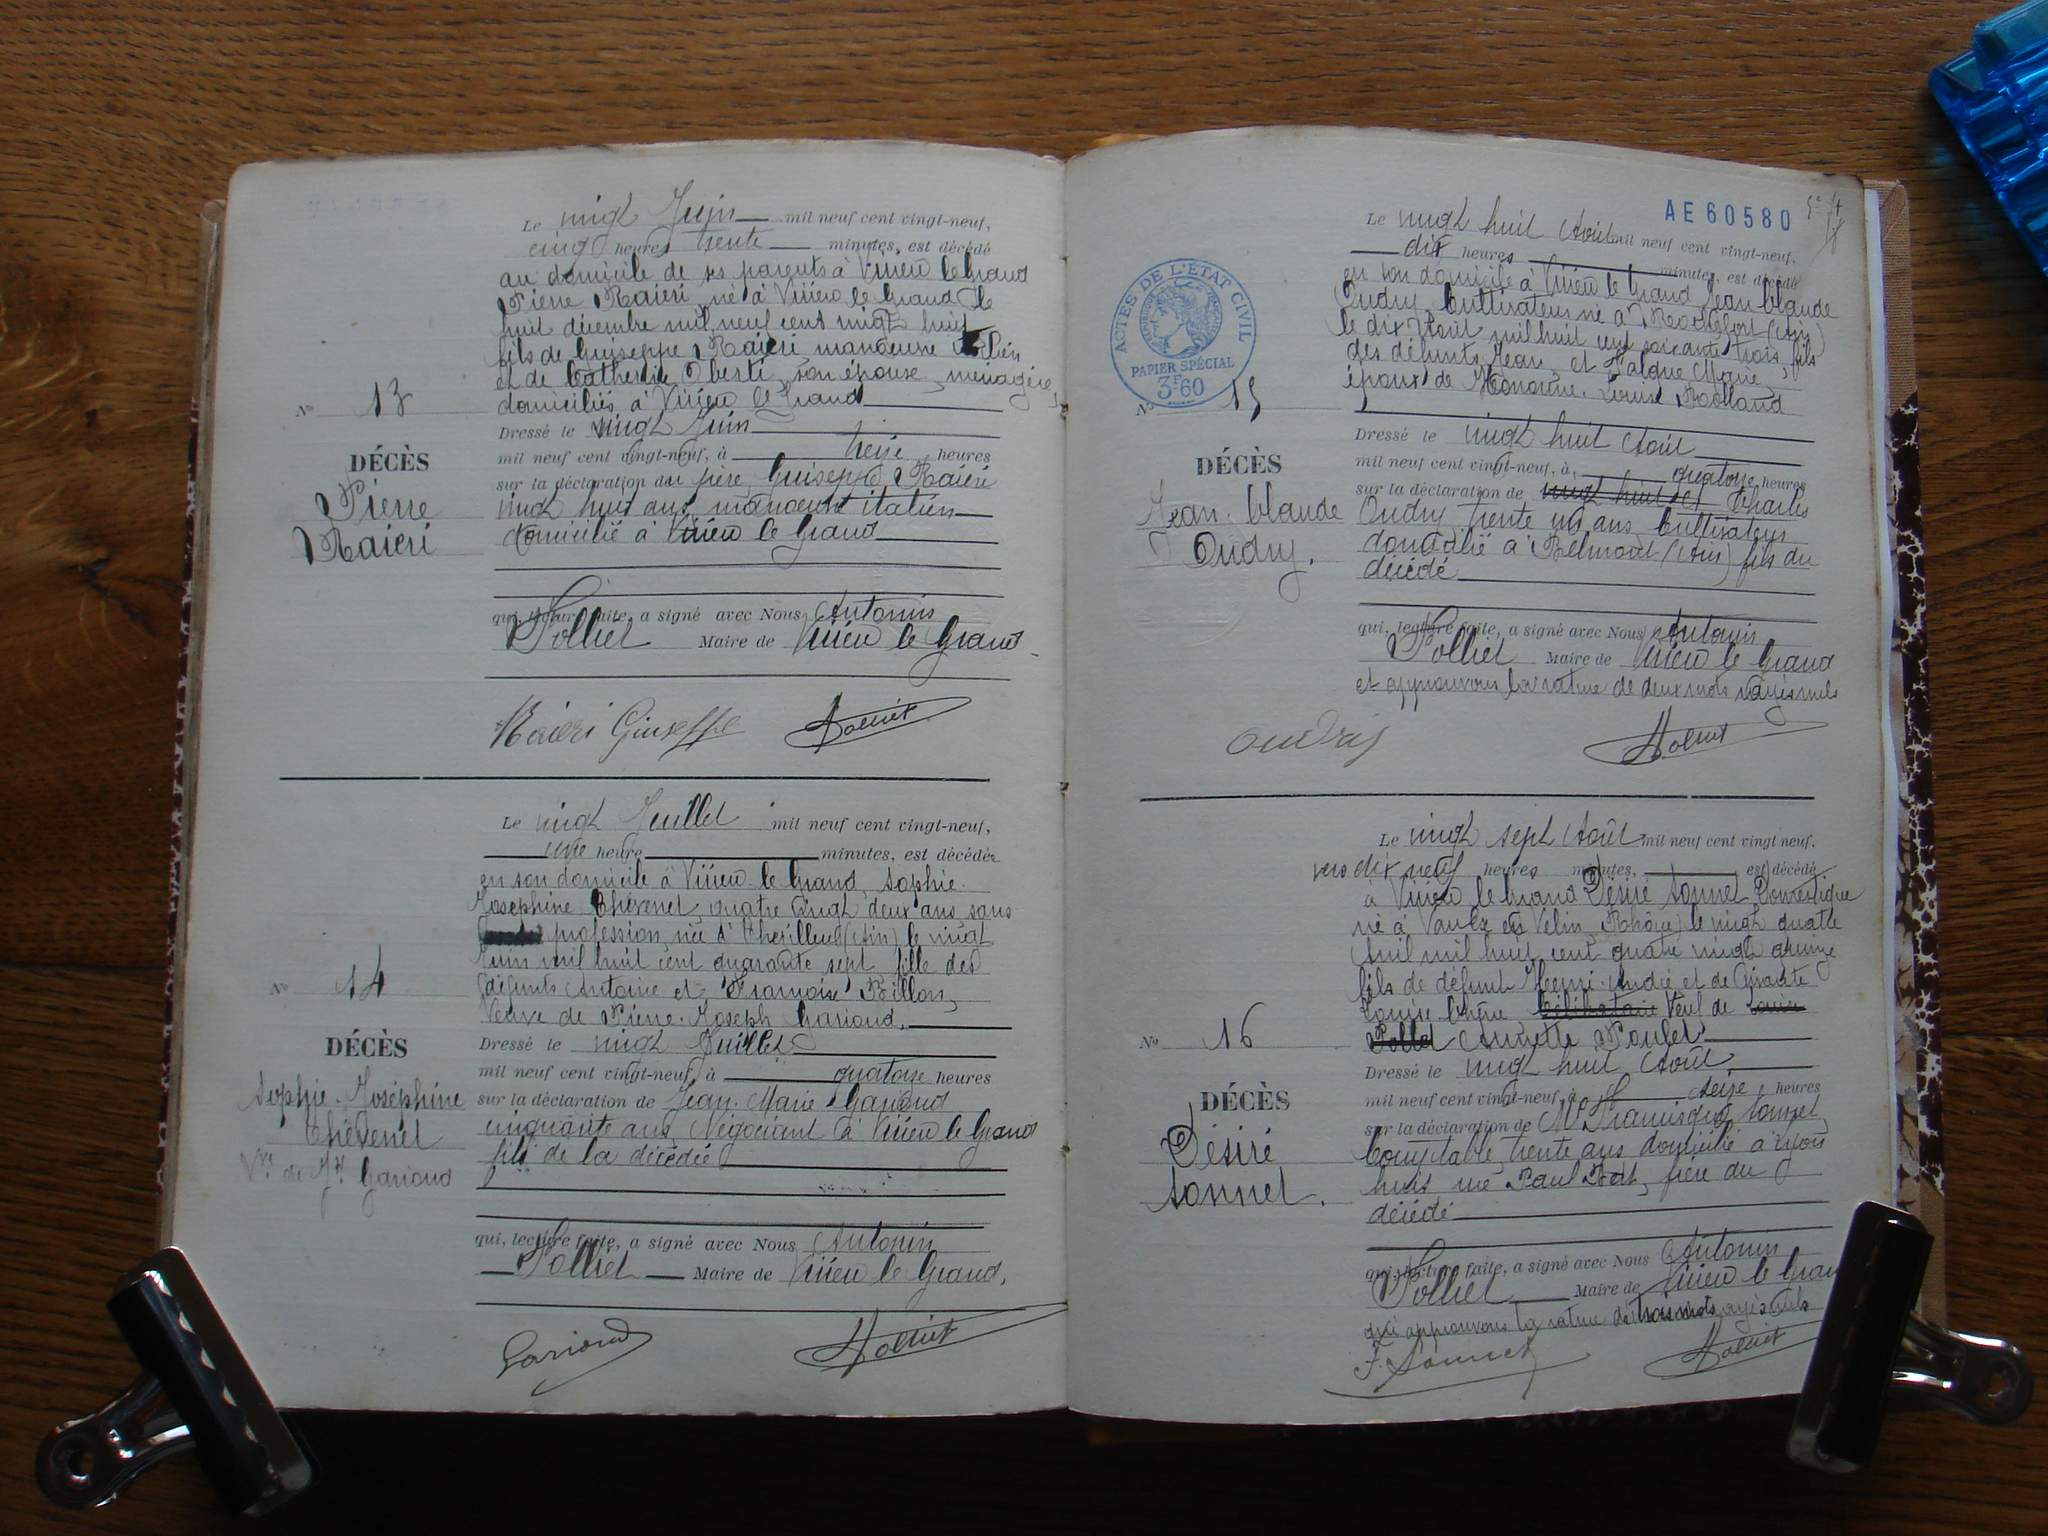 Le vingt Juin mil neuf cent vingt-neuf,
cinq heures trente minutes, est décédé
au domicile de ses parents à Virieu le Grand
Pierre Raiéri, né à Virieu le Grand le
huit décembre mil neuf cent vingt huit
fils de Guiseppe Raiéri manoeuvre italien
et de Catherine Obesti, son épouse, ménagère,
domiciliés à Virieu le Grand
Nº 13
Dressé le vingt Juin
mil neuf cent vingt-neuf, à treize heures
DÉCÈS
Pierre
Raiéri
sur la déclaration du père, Guiseppe Raiéri
vingt huit ans, manoeuvre italien
domicilié à Virieu le Grand
qui, lecture faite, a signé avec Nous, Antonin
Polliet Maire de Virieu le Grand
Raieri Giuseppe Polliet
Le vingt Juillet mil neuf cent vingt-neuf,
une heure minutes, est décédée
en son domicile à Virieu-le-Grand, Sophie-
Joséphine Thévenet, quatre vingt deux ans, sans
profession, née à (Ain) le vingt
Juin mil huit cent quarante sept fille des
défunts Antoine et Françoise Billon,
Veuve de Pierre-Joseph Garioud.
Nº 14
Dressé le vingt Juillet
mil neuf cent vingt-neuf, à quatorze heures
DÉCÈS
Sophie-Joséphine
Thévenet
Vve de Garioud
sur la déclaration de Jean-Marie Garioud
cinquante ans, Négociant à Virieu le Grand
fils de la décédée
qui, lecture faite, a signé avec Nous, Antonin
Polliet Maire de Virieu le Grand,
Garioud Polliet
AE 60580
ACTES DE L'ÉTAT CIVIL
PAPIER SPÉCIAL
3F60
Le vingt huit Août mil neuf cent vingt-neuf,
dix heures minutes, est décédé
en son domicile à Virieu le Grand Jean Claude
Oudry, Cultivateur né à Rochefort (Ain)
le dix Août mil huit cent soixante trois, fils
des défunts Jean et Falque Marie,
époux de Honorine-Louise Rolland
Nº 15
Dressé le vingt huit Août
mil neuf cent vingt-neuf, à quatorze heures
DÉCÈS
Jean-Claude
Oudry.
sur la déclaration de vingt huit et Charles
Oudry, trente un ans, Cultivateur
domicilié à Belmont (Ain) fils du
décédé
qui, lecture faite, a signé avec Nous, Antonin
Polliet Maire de Virieu le Grand
et approuvons la rature de deux mots rayés nuls
Oudry Polliet
Le vingt sept Août mil neuf cent vingt-neuf,
vers dix neuf heures minutes, est décédé
à Virieu le Grand Désiré Sonnet, Domestique
né à Vaulx en Velin, (Rhône) le vingt quatre
Avril mil huit cent quatre vingt quinze
fils de défunt Henri-André et de
Louise Célibataire Veuf de Louise
Pollet Annette Poulet
Nº 16
Dressé le vingt huit Août
mil neuf cent vingt-neuf, à seize heures
DÉCÈS
Désiré
Sonnet.
sur la déclaration de M. Francisque Sonnet,
Comptable, trente ans domicilié à Lyon
huit rue Paul Bert, frère du
décédé
qui, lecture faite, a signé avec Nous Antonin
Polliet Maire de Virieu le Gran
qui approuvons la rature de trois mots rayés nuls
F. Sonnet Polliet